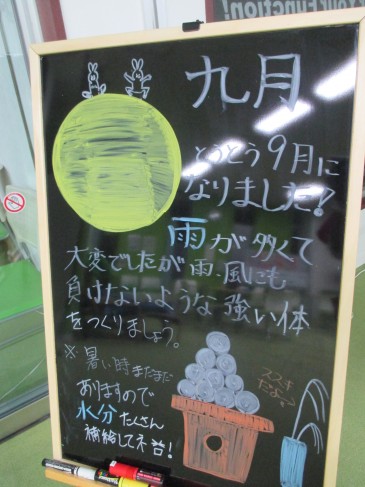 Function!
九月
とうとう9月に
なりました!
雨が多くて
大変でしたが雨、風にも
負けないような強い体
をつくりましょう。
※暑い時まだまだ
ありますので
水分たくさん
補給してネ!
ススキ
だよ〜